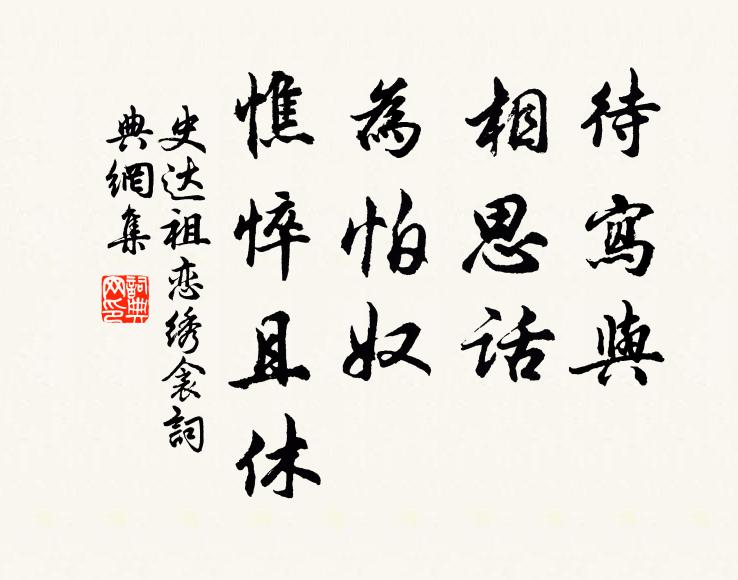 待寫與
相思話
為怕奴
憔悴且休
史达祖恋绣衾詞
典網集
詞典
网印